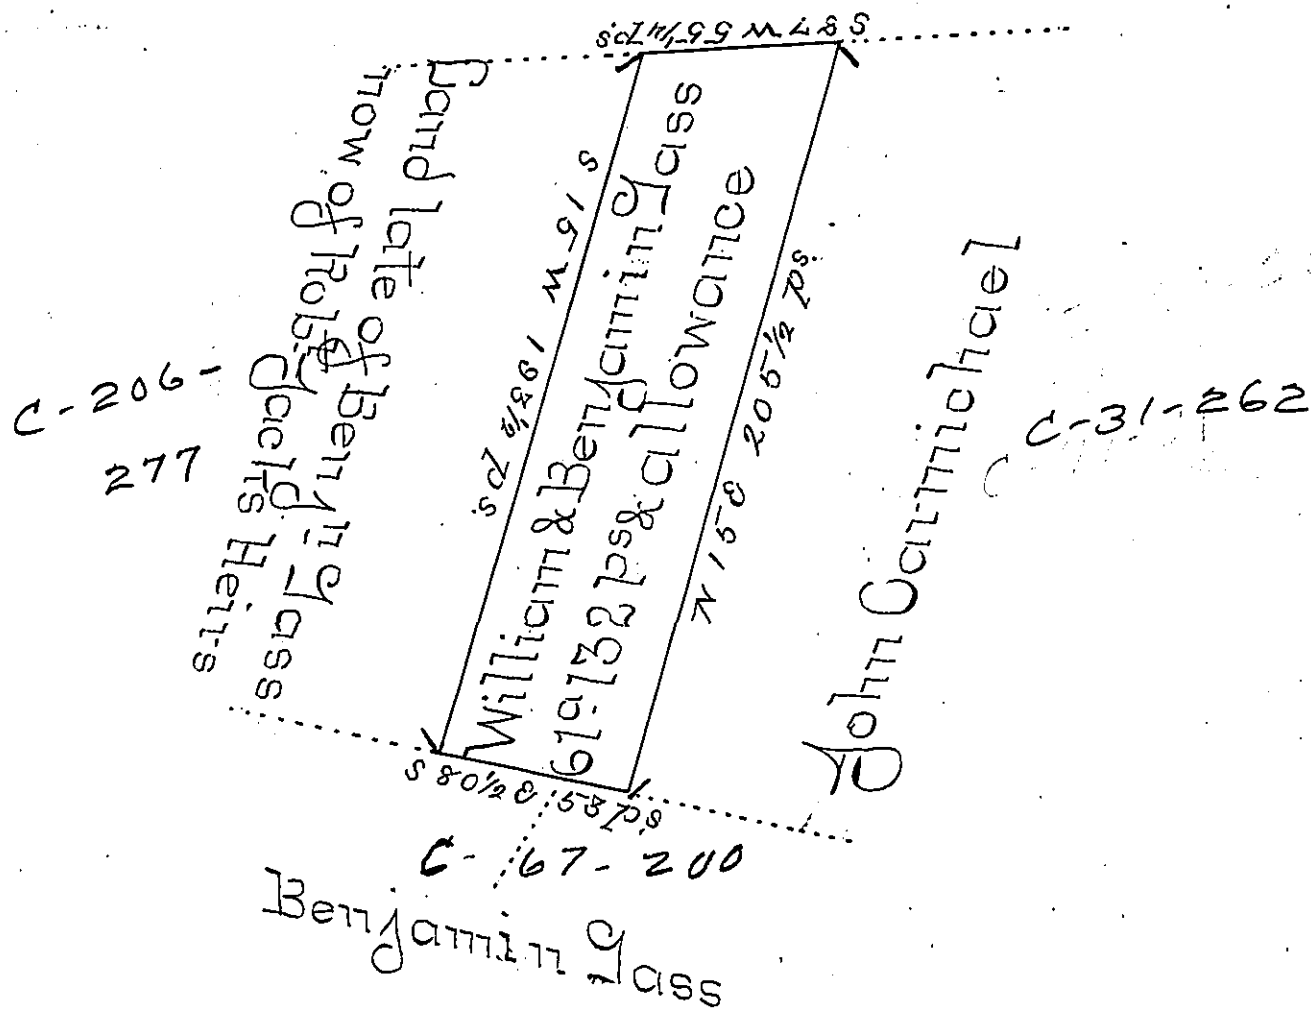 S 87 W 55 1/4 Ps.
Land late of Benjn Gass
now of Robt
Jack's Heirs
C-206-
277
S 15 W 193 1/2 Ps.
William & Benjamin Gass
61a. 132 ps & allowance
N 15 E 205 1/2 Ps.
John Carmichael
C-31-262
S 80 1/2 E 53 Ps.
C-67-200
Benjamin Gass